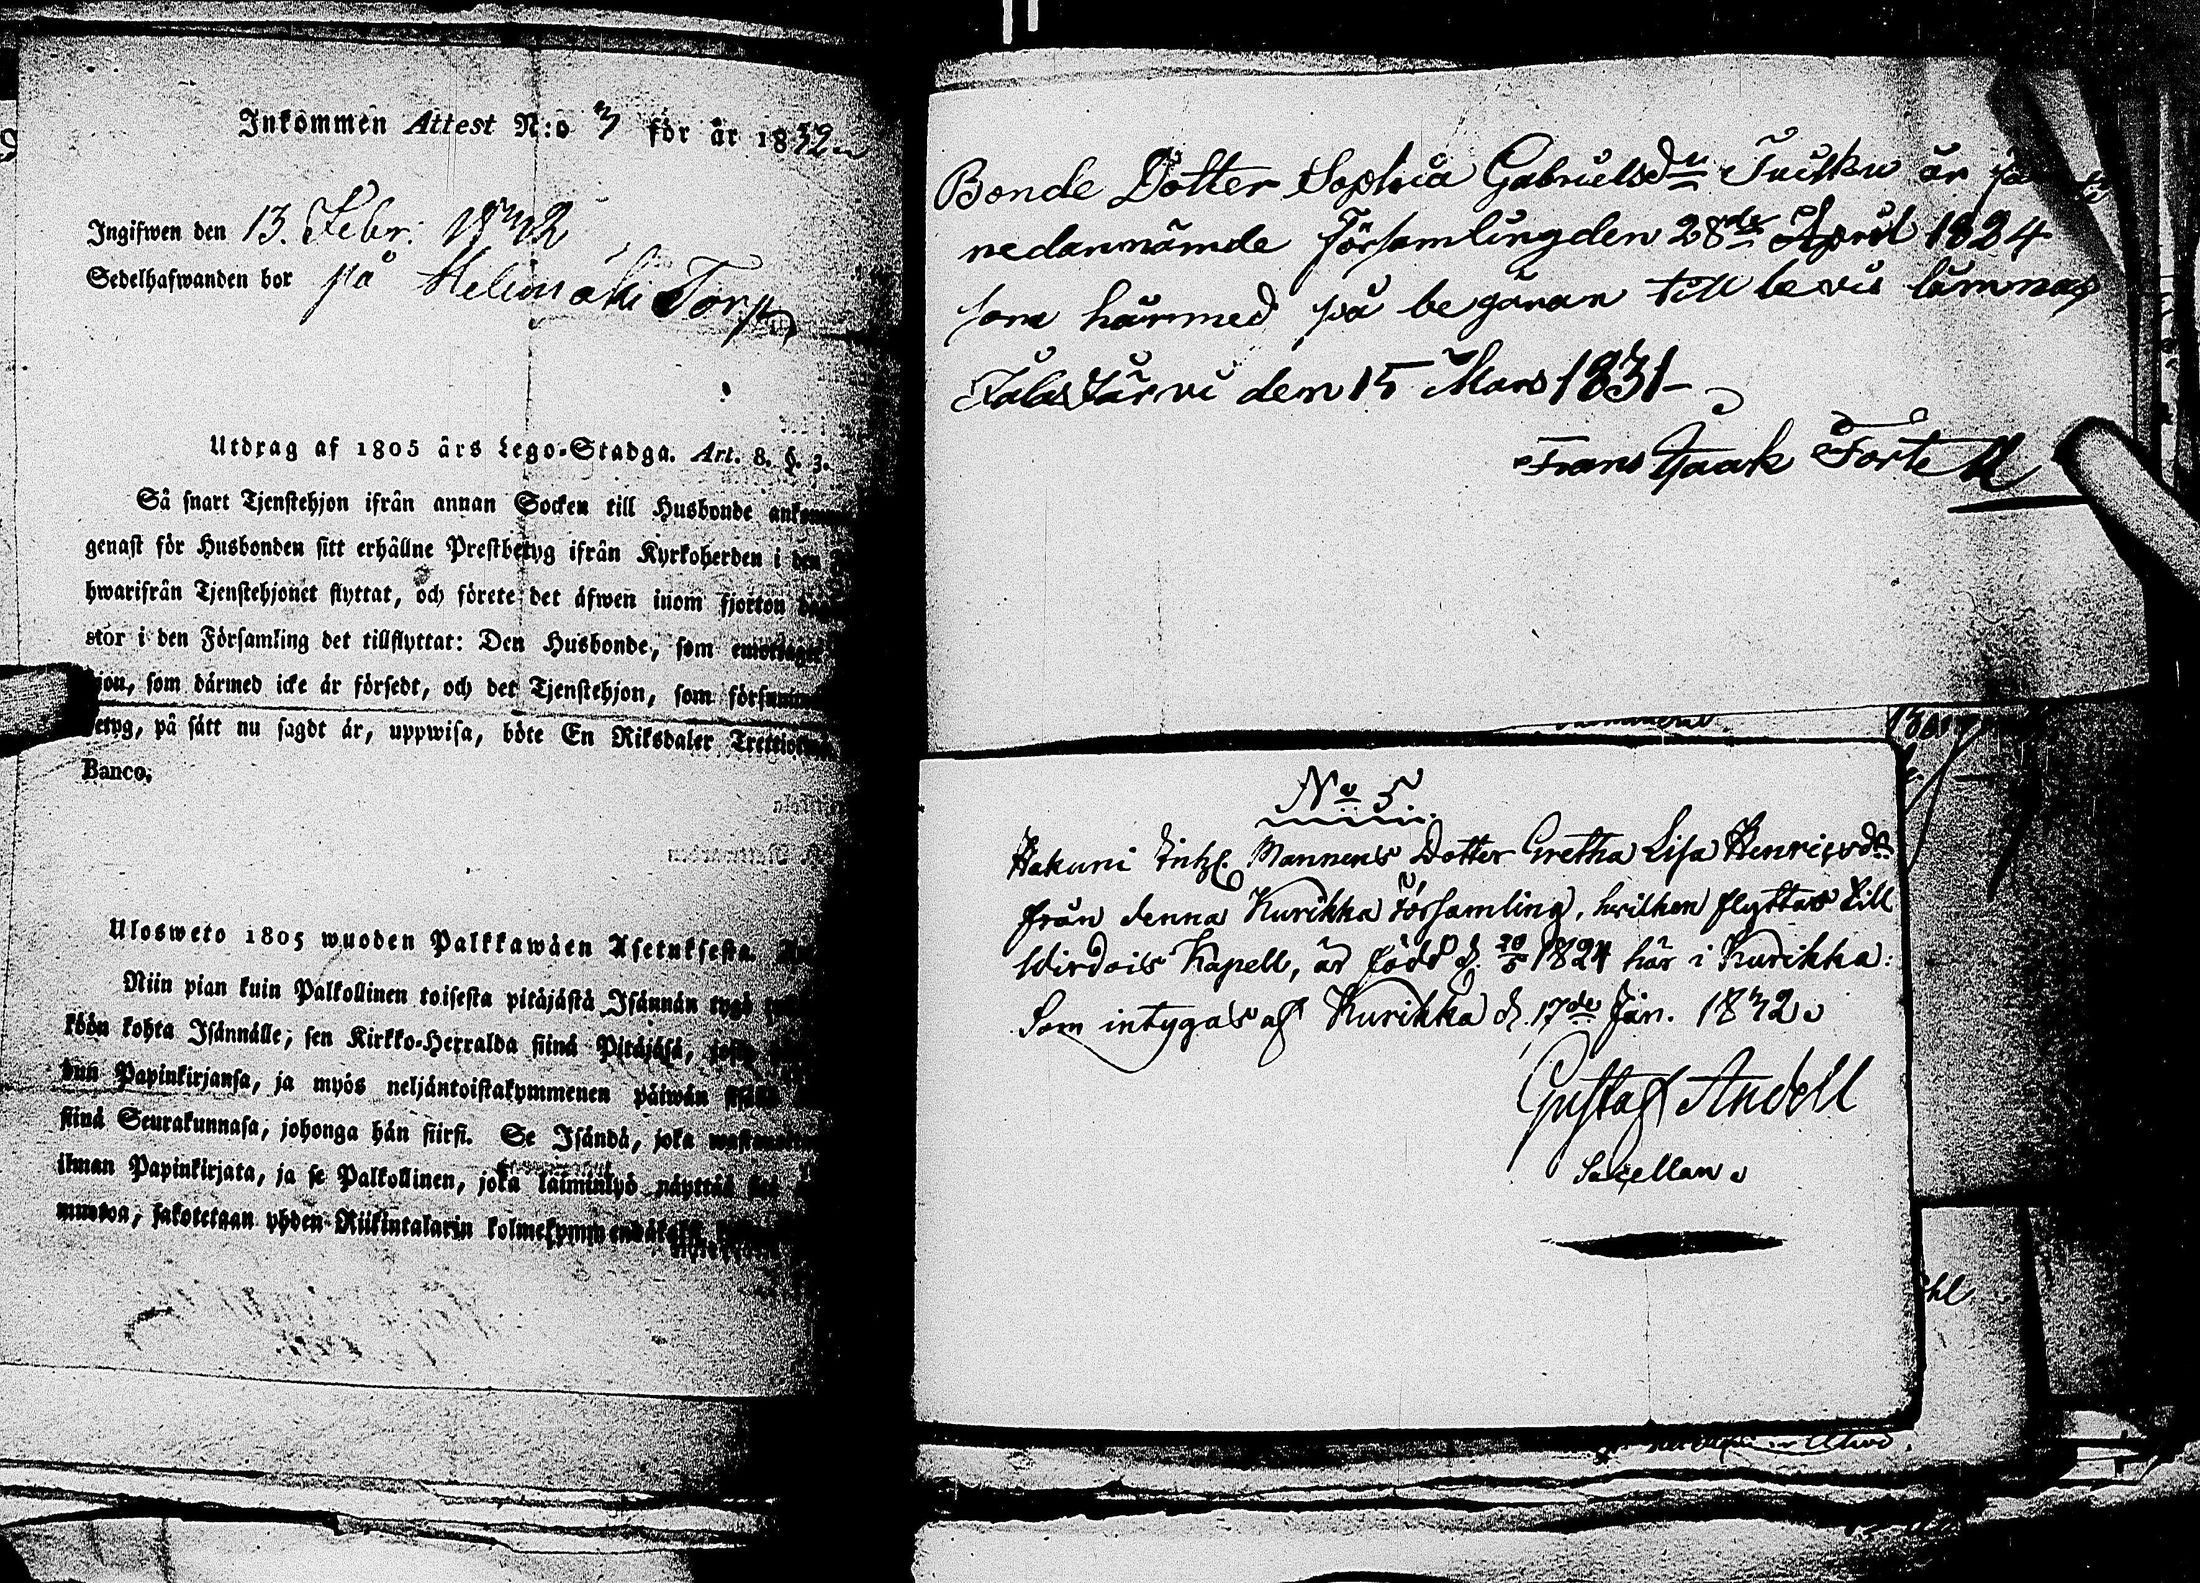 Inkommen Attest N:o 3 för år 1832
Ingifwen den 13. Febr. 1832
Sedelhafwanden bor på Torp
Utdrag af 1805 års Lego-Stadga. Art. 8. §. 3.
Så snart Tjenstehjon ifrån annan Socken till Husbonde
genast för Husbonden sitt erhållne Prestbetyg ifrån Kyrkoherden i den
hwarifrån Tjenstehjonet flyttat, och förete det äfwen inom fjorton
stor i den Församling det tillflyttat: Den Husbonde, som
hjon, som därmed icke är försedt, och det Tjenstehjon, som
betyg, på sätt nu sagdt är, uppwisa, böte En Riksdaler
Banco.
Ulosweto 1805 wuoden Palkkawäen Asetuksesta.
Niin pian kuin Palkollinen toisesta pitäjästä Isännän tygö
köön kohta Isännälle, sen Kirkko-Herralda siinä Pitäjäsä,
hun Papinkirjansa, ja myös neljäntoistakymmenen päiwän
siinä Seurakunnasa, johonga hän siirsi. Se Isändä, joka
ilman Papinkirjata, ja se Palkollinen, joka laimin näyttää
muotoa, sakotetaan yhden Riikintalarin
Bonde Dotter Sophia Gabrielsdr är
nedannämde Församling den 28de April 1824
som härmed på begäran till bevis lämnas
Jalasjärvi den 15 Mars 1831
Frans Isaak Fortell
No 5
Hakuni Inhs. Mannens Dotter Gretha Lisa Henricsdr
från denna Kurikka Församling, hvilken flyttar till
Wirdois Kapell, är född d. 1824 här i Kurikka:
Som intygas af Kurikka d. 17de Jan. 1832.
Gustaf Andell
Sacellan